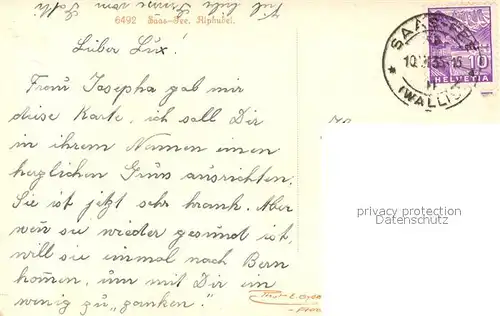 6492 Saas-Fee. Alphubel.
Lieber Lux!
Frau Josepha gab mir
diese Karte, ich soll Dir
in ihrem Namen einen
herzlichen Gruss ausrichten.
Sie ist jetzt sehr krank. Aber
wen sie wieder gesund ist,
will sie einmal nach Bern
kommen, um mit Dir ein
wenig zu „zanken".
SAAS-FEE
(WALLIS)
10
HELVETIA
privacy protection
Datenschutz